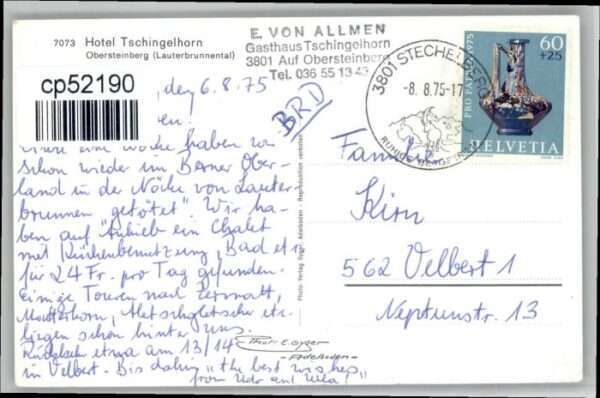 7073 Hotel Tschingelhorn
Obersteinberg (Lauterbrunnental)
E. VON ALLMEN
Gasthaus Tschingelhorn
3801 Auf Obersteinberg
Tel. 036 55 13 43
3801 STECHELBERG
-8. 8.75-17
PRO PATRIA 1975
60
+25
HELVETIA
cp52190
, den 6.8.75
BRD
eine Woche haben wir
schon wieder im Berner Ober-
land in der Nähe von Lauter-
brunnen "getötet". Wir ha-
ben auf Anhieb ein Chalet
mit Küchenbenutzung, Bad etc.
für 24 Fr. pro Tag gefunden.
Einige Touren nach Zermatt,
Matterhorn, Aletschgletscher etc.
liegen schon hinter uns.
Rückkehr etwa am 13/14
in Velbert. Bis dahin "the best wishes
from Udo and Ulla!"
Familie
Kirn
562 Velbert 1
Neptunstr. 13
Adelboden